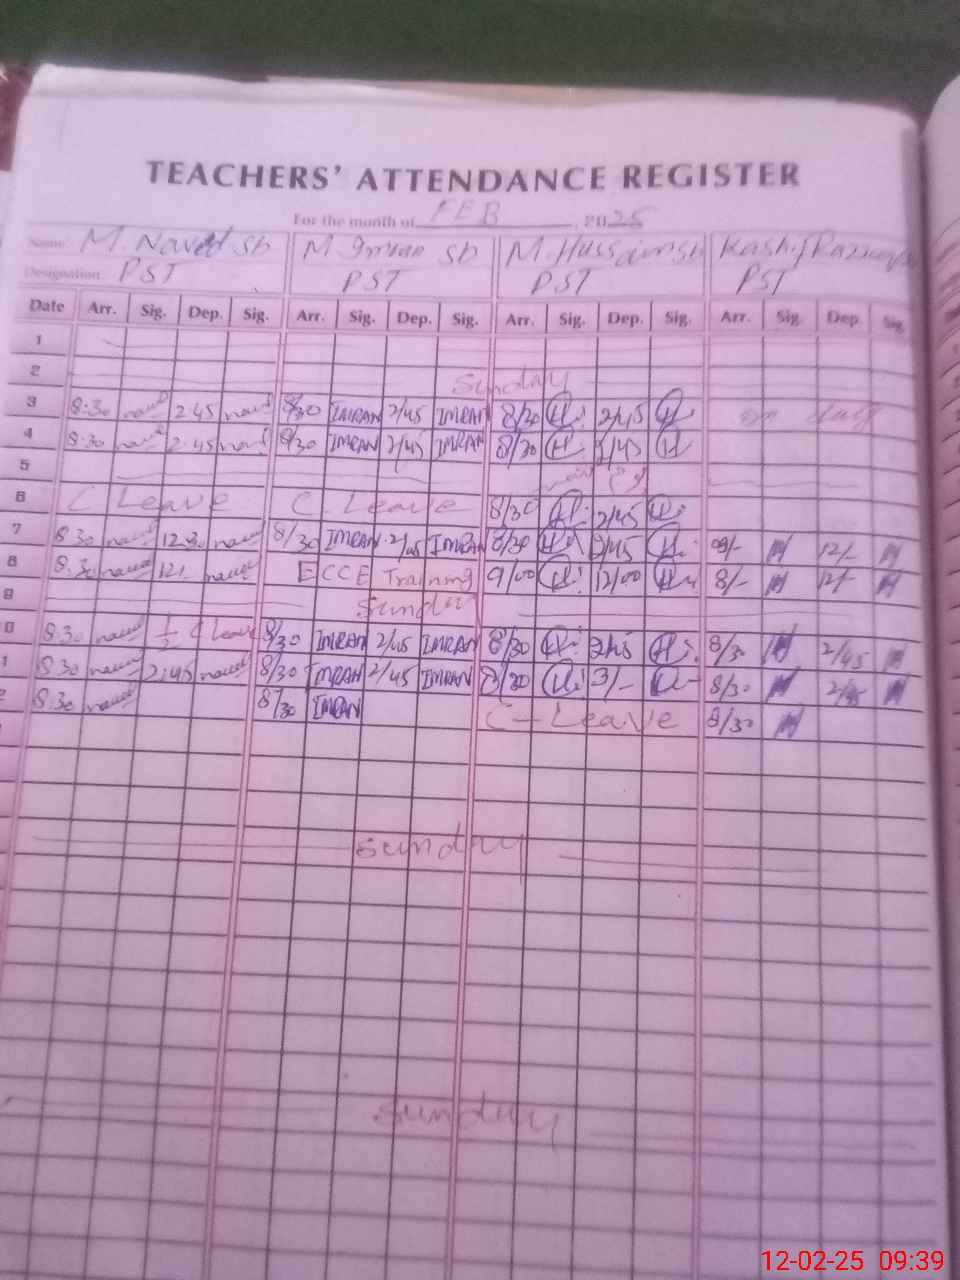 TEACHERS' ATTENDANCE REGISTER
For the month of FEB, 2025
Name: M. Naved sb M. Imran sb M. Hussain sb Kashif
Designation: PST PST PST PST
Date Arr. Sig. Dep. Sig. Arr. Sig. Dep. Sig. Arr. Sig. Dep. Sig. Arr. Sig. Dep. Sig.
1
2 Sunday
3 8:30 naved 2:45 naved 8/30 IMRAN 2/45 IMRAN 8/30 H 2/45 H
4 8:30 naved 2:45 naved 8/30 IMRAN 2/45 IMRAN 8/30 H 2/45 H
5
6 C Leave C Leave 8/30 H 2/45 H
7 8:30 naved 12:30 naved 8/30 IMRAN 2/45 IMRAN 8/30 H 2/45 H 12/-
8 8:30 naved 12/- naved ECCE Training 9/00 H 12/00 H 8/- 12/-
9 Sunday
0 8:30 naved 1/2 C leave 8/30 IMRAN 2/45 IMRAN 8/30 H 2/45 H 8/30 2/45
1 8:30 naved 2:45 naved 8/30 IMRAN 2/45 IMRAN 8/30 H 3/- H 8/30 2/45
2 8:30 naved 8/30 IMRAN C-Leave 8/30
Sunday
Sunday
12-02-25 09:39